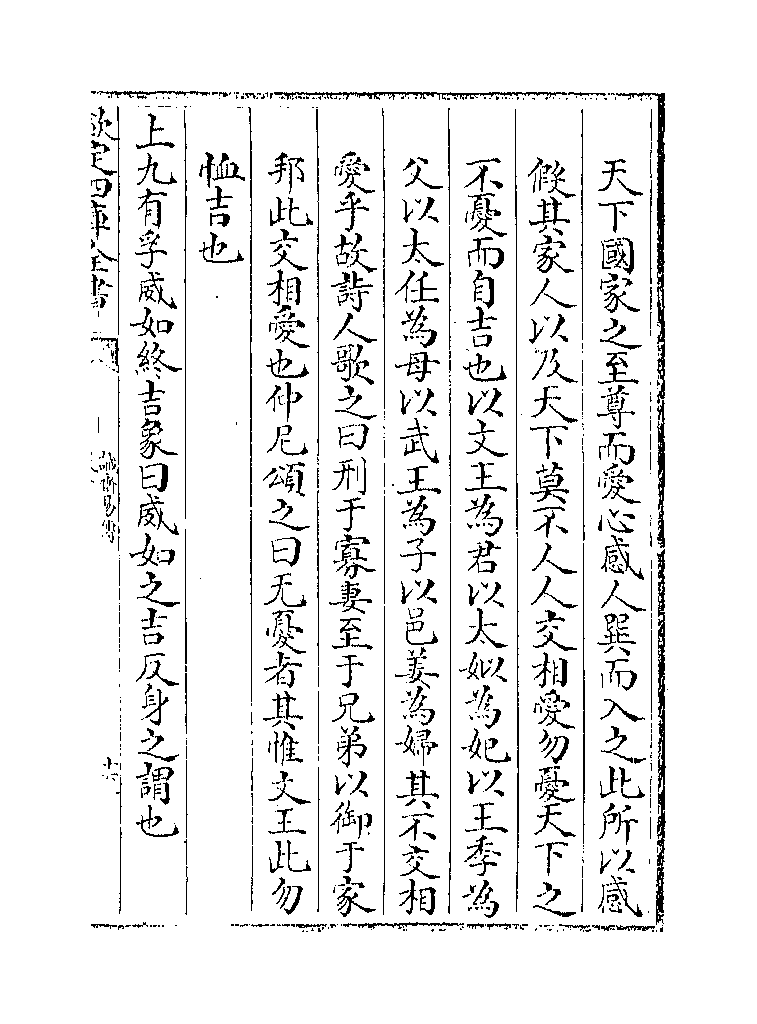 天下國家之至尊而愛心感人巽而入之此所以感
假其家人以及天下莫不人人交相愛勿憂天下之
不憂而自吉也以文王為君以太姒為妃以王季為
父以太任為母以武王為子以邑姜為婦其不交相
愛乎故詩人歌之曰刑于寡妻至于兄弟以御于家
邦此交相愛也仲尼頌之曰无憂者其惟文王此勿
恤吉也
上九有孚威如終吉象曰威如之吉反身之謂也
欽定四庫全書
誠齋易傳
十六